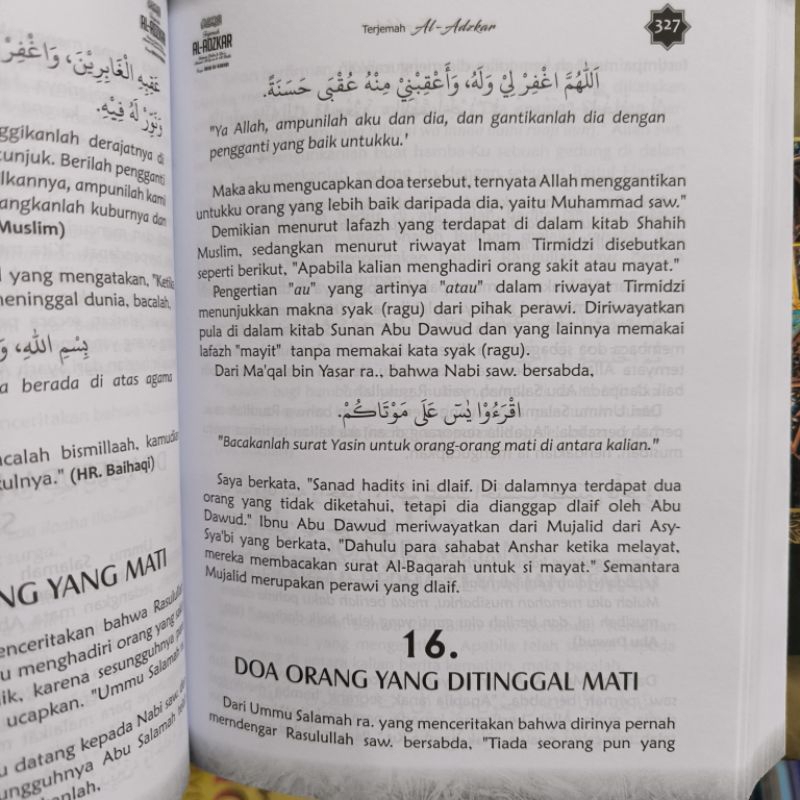 عَقِبِهِ الْغَابِرِيْنَ، وَاغْفِرْ
وَنَوِّرْ لَهُ فِيْهِ.
ggikanlah derajatnya di
unjuk. Berilah pengganti
lkannya, ampunilah kami
angkanlah kuburnya dan
Muslim)
yang mengatakan, "Ketika
meninggal dunia, bacalah,
بِسْمِ اللهِ، وَ
a berada di atas agama
acalah bismillaah, kamudian
kulnya." (HR. Baihaqi)
NG YANG MATI
enceritakan bahwa Rasulul
u menghadiri orang yang saki
ik, karena sesungguhnya
ucapkan. "Ummu Salamah
u datang kepada Nabi saw. da
ungguhnya Abu Salamah
anlah.
AL-ADZKAR
Terjemah
AL-ADZKAR
Terjemah Al-Adzkar
327
اَللّٰهُمَّ اغْفِرْ لِيْ وَلَهُ، وَأَعْقِبْنِيْ مِنْهُ عُقْبَى حَسَنَةً.
"Ya Allah, ampunilah aku dan dia, dan gantikanlah dia dengan
pengganti yang baik untukku.'
Maka aku mengucapkan doa tersebut, ternyata Allah menggantikan
untukku orang yang lebih baik daripada dia, yaitu Muhammad saw."
Demikian menurut lafazh yang terdapat di dalam kitab Shahih
Muslim, sedangkan menurut riwayat Imam Tirmidzi disebutkan
seperti berikut, "Apabila kalian menghadiri orang sakit atau mayat."
Pengertian "au" yang artinya "atau" dalam riwayat Tirmidzi
menunjukkan makna syak (ragu) dari pihak perawi. Diriwayatkan
pula di dalam kitab Sunan Abu Dawud dan yang lainnya memakai
lafazh "mayit" tanpa memakai kata syak (ragu).
Dari Ma'qal bin Yasar ra., bahwa Nabi saw. bersabda,
اقْرَءُوْا يٰسٓ عَلَى مَوْتَاكُمْ.
"Bacakanlah surat Yasin untuk orang-orang mati di antara kalian."
Saya berkata, "Sanad hadits ini dlaif. Di dalamnya terdapat dua
orang yang tidak diketahui, tetapi dia dianggap dlaif oleh Abu
Dawud." Ibnu Abu Dawud meriwayatkan dari Mujalid dari Asy-
Sya'bi yang berkata, "Dahulu para sahabat Anshar ketika melayat,
mereka membacakan surat Al-Baqarah untuk si mayat." Semantara
Mujalid merupakan perawi yang dlaif.
16.
DOA ORANG YANG DITINGGAL MATI
Dari Ummu Salamah ra. yang menceritakan bahwa dirinya pernah
merndengar Rasulullah saw. bersabda, "Tiada seorang pun yang